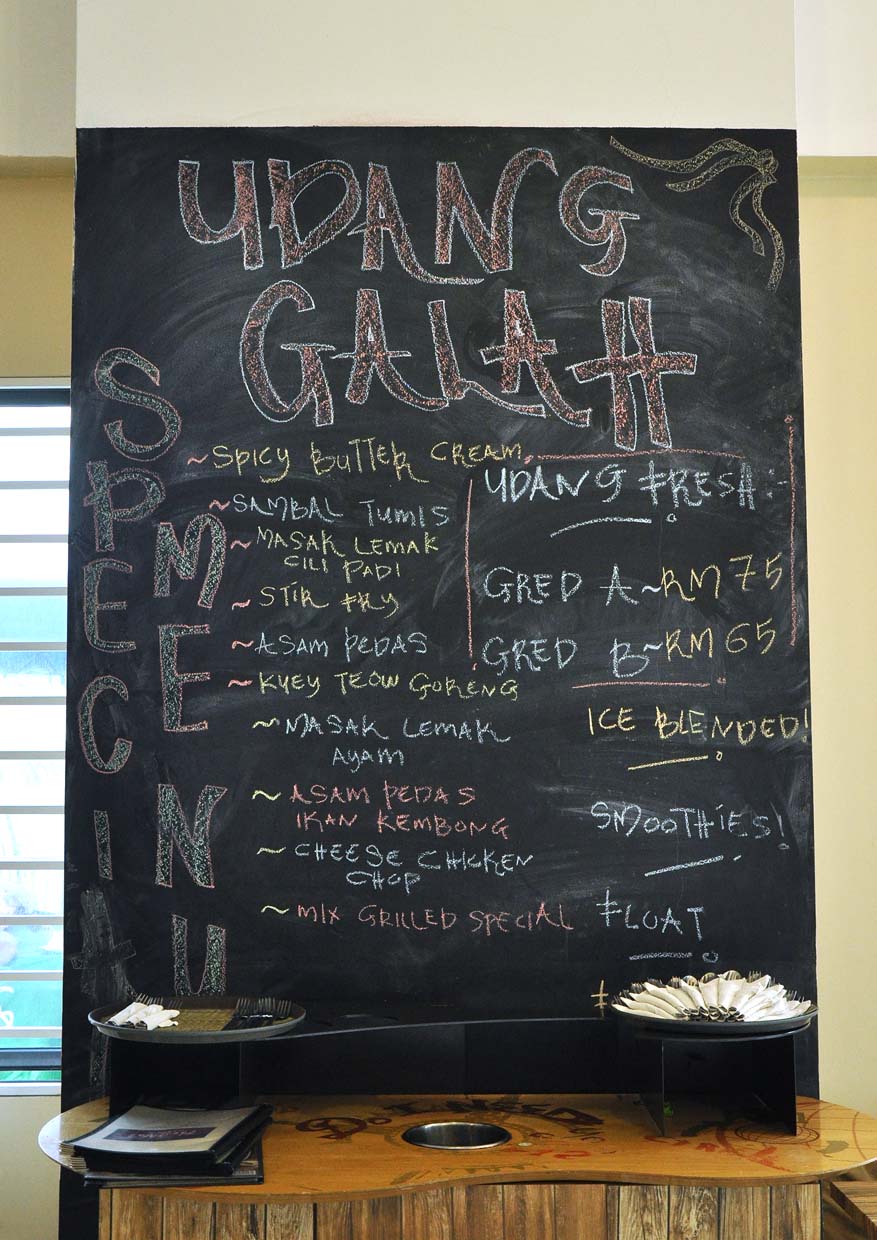 UDANG
GALAH
SPECIAL
MENU
~SPICY BUTTER CREAM
~SAMBAL TUMIS
~MASAK LEMAK
CILI PADI
~STIR FRY
~ASAM PEDAS
~KUEY TEOW GORENG
~MASAK LEMAK
AYAM
~ASAM PEDAS
IKAN KEMBONG
~CHEESE CHICKEN
CHOP
~MIX GRILLED SPECIAL
UDANG FRESH:-
GRED A~RM75
GRED B~RM65
ICE BLENDED!
SMOOTHIES!
FLOAT